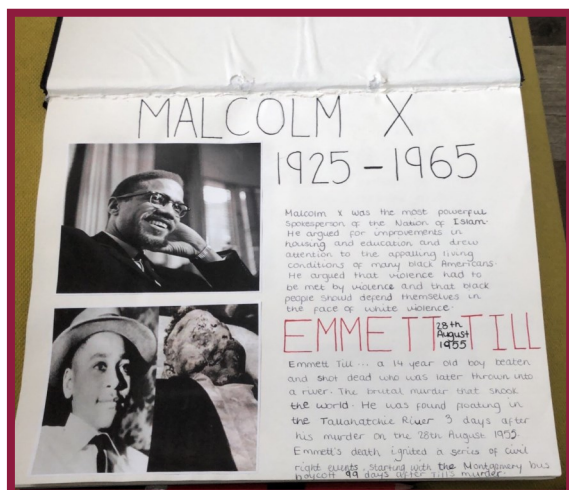 MALCOLM X
1925 - 1965
Malcolm X was the most powerful
Spokesperson of the Nation of Islam.
He argued for improvements in
housing and education and drew
attention to the appalling living
conditions of many black Americans.
He argued that violence had to
be met by violence and that black
people should defend themselves in
the face of white violence.
EMMETT TILL
28th
August
1955
Emmett Till... a 14 year old boy beaten
and shot dead who was later thrown into
a river. The brutal murder that shook
the world. He was found floating in
the Tallahatchie River 3 days after
his murder on the 28th August 1955.
Emmett's death ignited a series of civil
right events. Starting with the Montgomery bus
boycott 99 days after Till's murder.